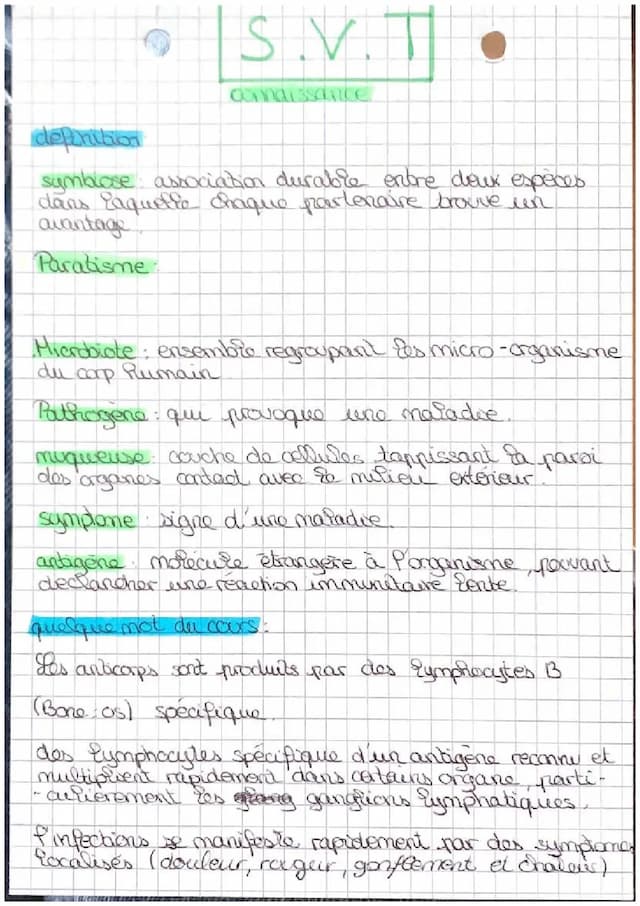 S.V.T
connaissance
definition
symbiose : association durable entre deux espèces
dans laquelle chaque partenaire trouve un
avantage.
Paratisme :
Microbiote : ensemble regroupant les micro-organisme
du corp humain
Pathogène : qui provoque une maladie.
muqueuse : couche de cellules tappissant la paroi
des organes contact avec le milieu extérieur.
symptome : signe d'une maladie.
antigène : molécule étrangère à l'organisme, pouvant
declancher une réaction immunitaire lente.
quelque mot du cours :
Les anticorps sont produits par des lymphocytes B
(Bone : os) spécifique.
des lymphocytes spécifique d'un antigène reconnu et
multiplient rapidement dans certains organe, parti-
-culièrement les ganglions lymphatiques.
l'infections se manifeste rapidement par des symptome
localisés (douleur, rougeur, gonflement et chaleur)